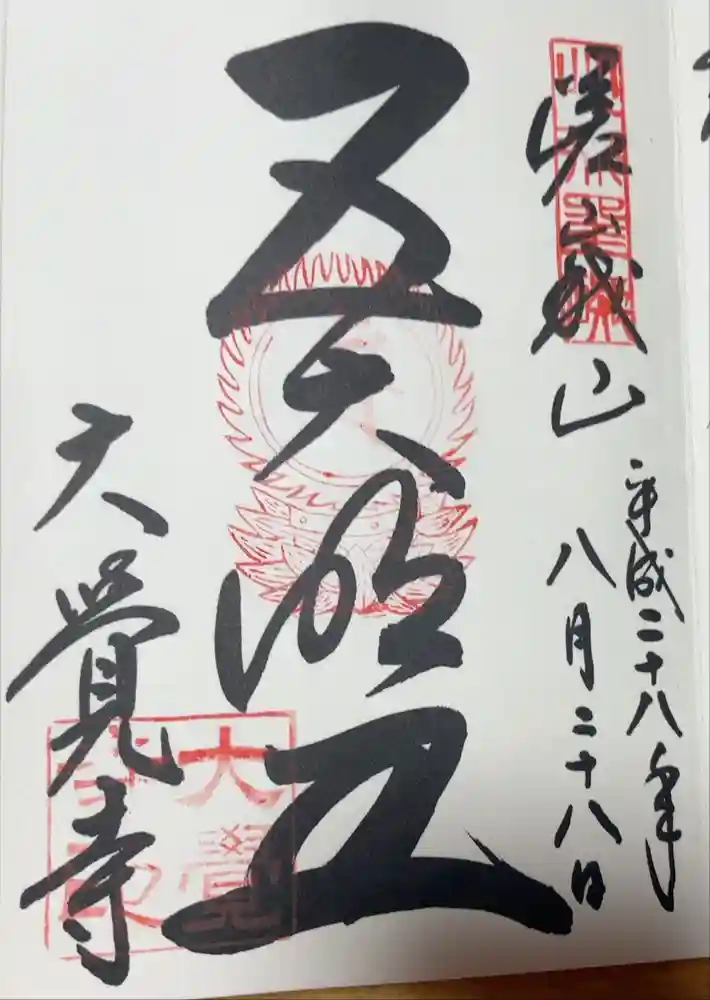 嵯峨山
平成二十八年
八月二十八日
五大明王
大覺寺
大覺
寺印